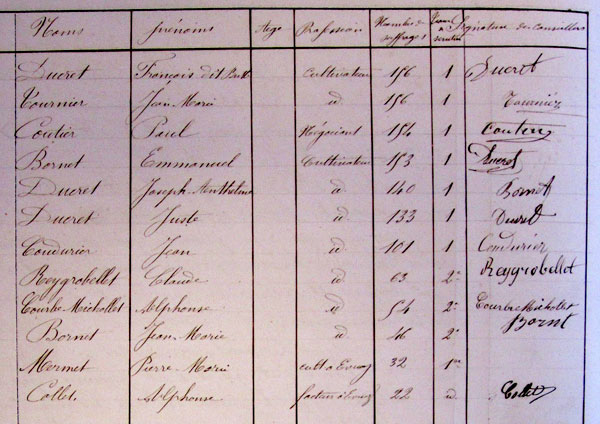 Noms prénoms Age Profession Nombre de suffrages Signature des Conseillers
Ducret François dit cultivateur 156 1 Ducret
Tournier Jean Marie id 156 1 Tournier
Coutier Paul Négociant 154 1
Bornet Emmanuel Cultivateur 153 1 Ducret
Ducret Joseph id 140 1 Bornet
Ducret Juste id 133 1 Ducret
Condurier Jean id 101 1 Condurier
Reygrobellet Claude id 63 2e Reygrobellet
Tourbe Michollet Alphonse id 54 2e
Bornet Jean Marie id 46 2e Bornet
Mermet Pierre Marie 32 1er
Collet Alphonse 22 id Collet